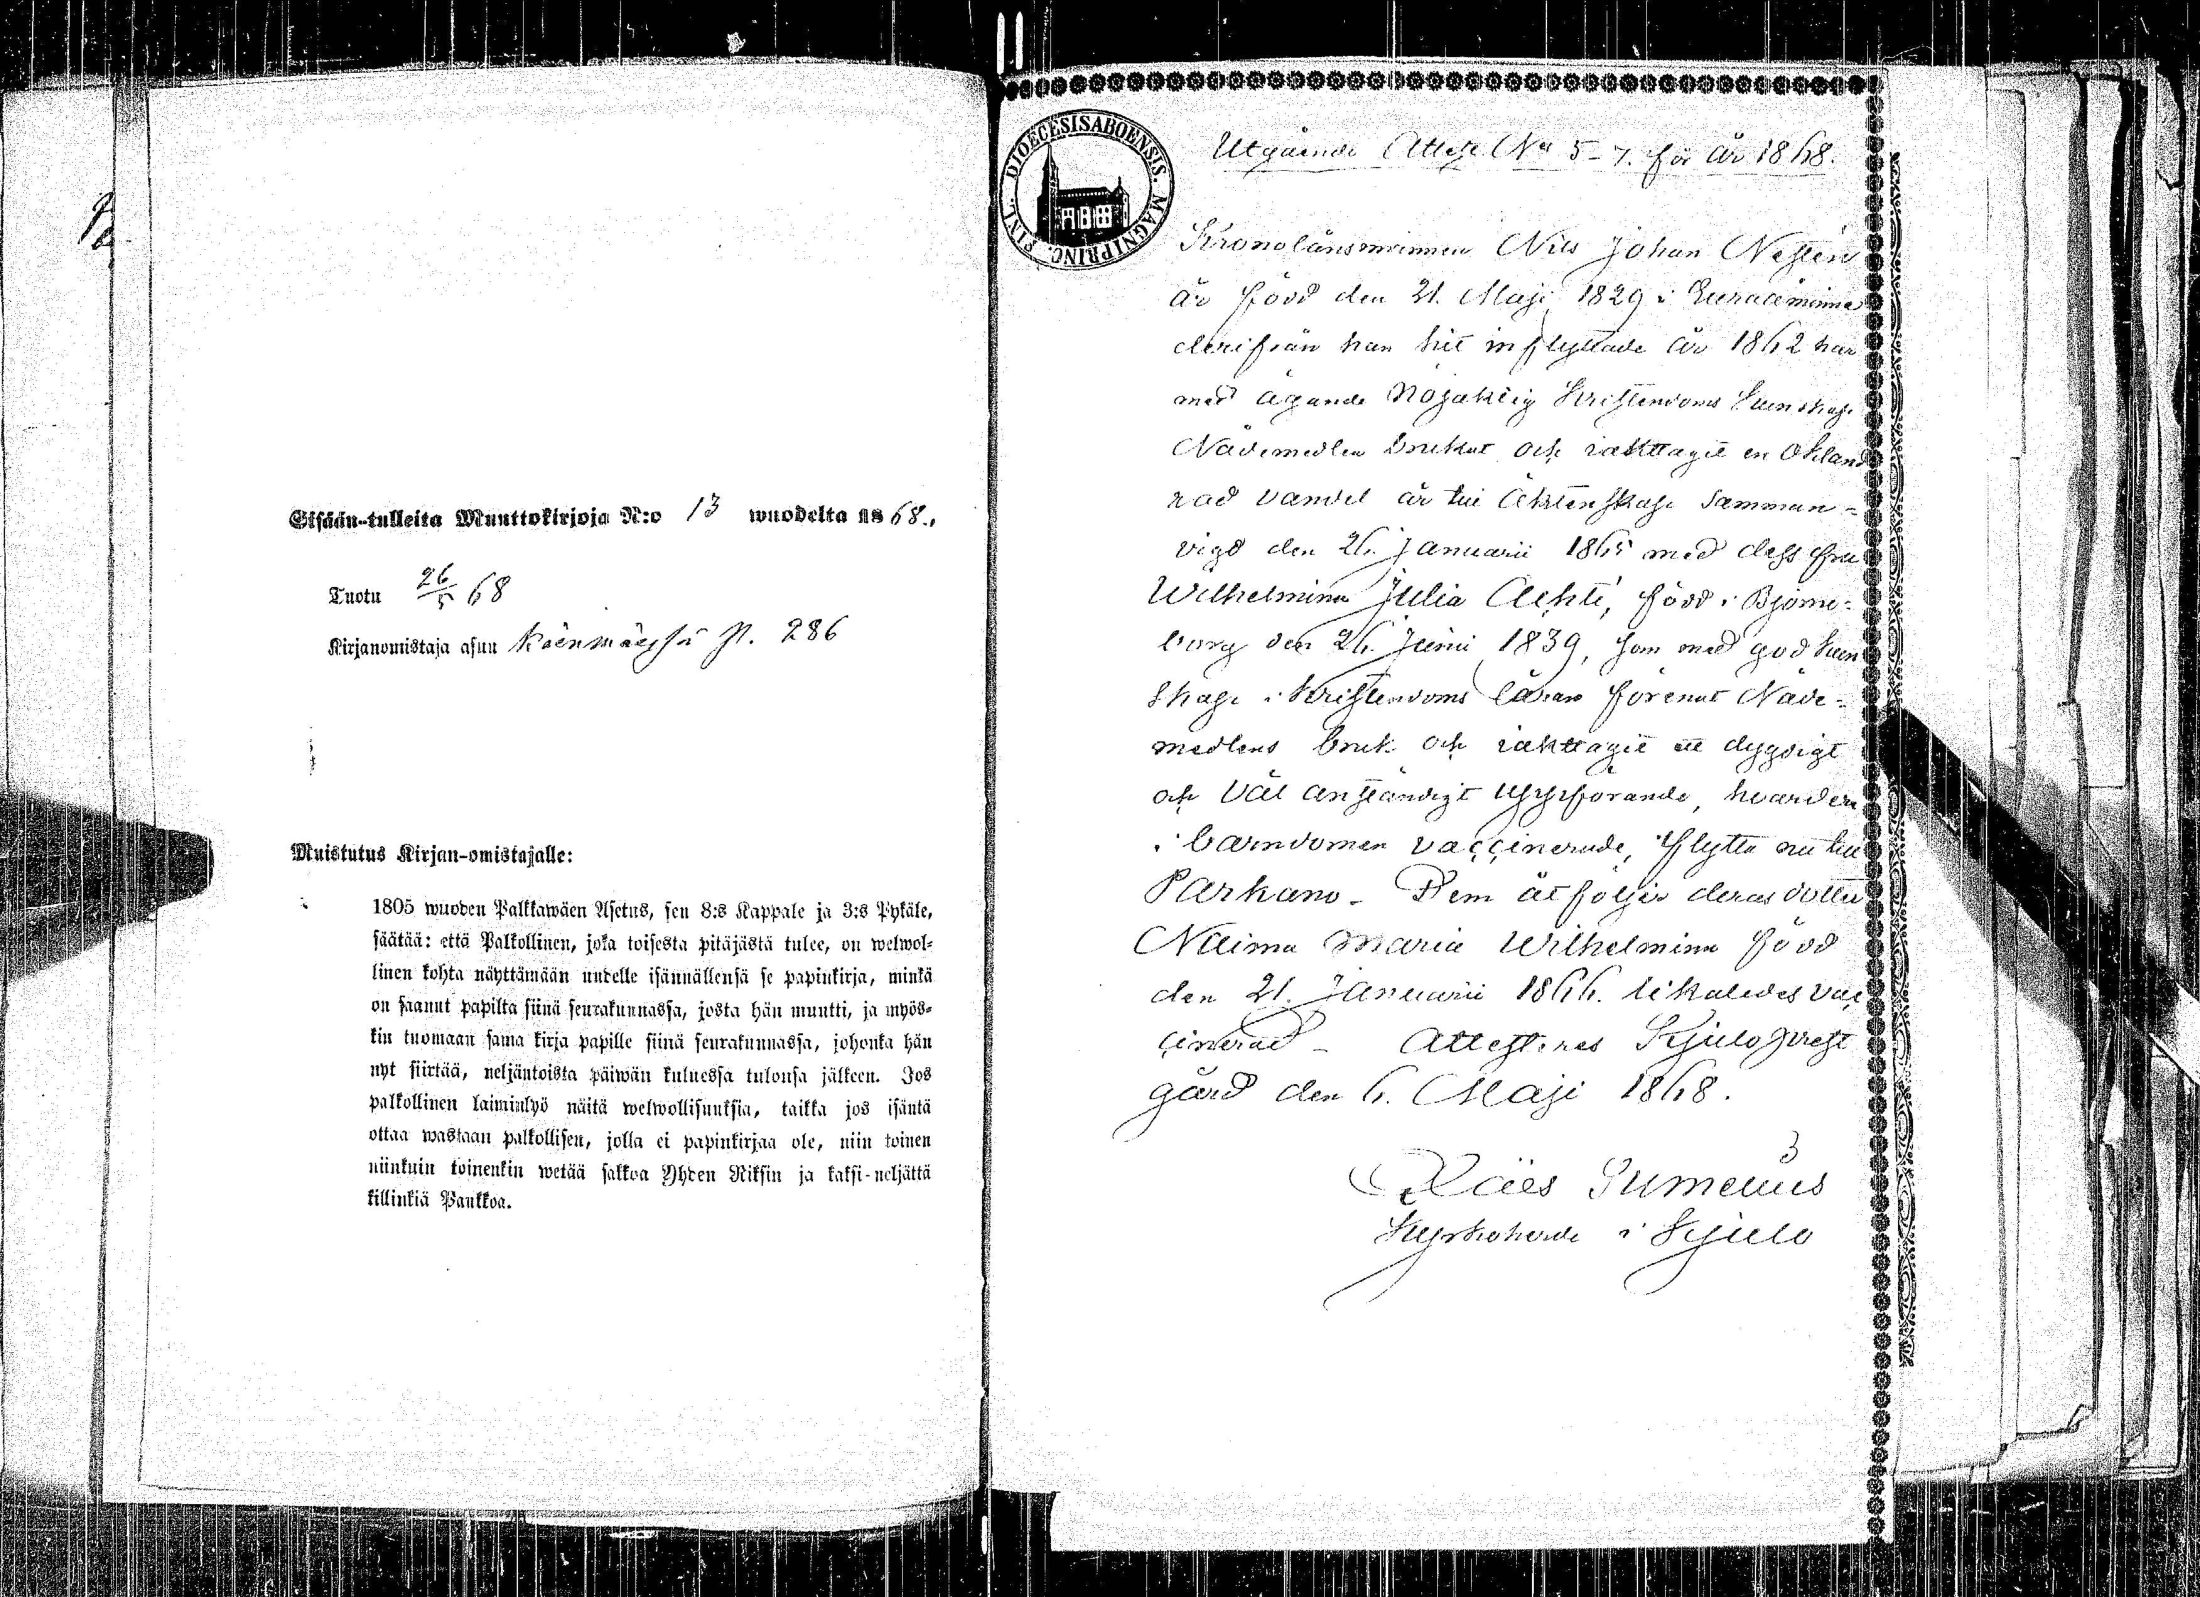 Sisään-tulleita Muuttokirjoja N:o 13 wuodelta 1868.
Tuotu 26/5 68
Kirjanomistaja asuu p. 286
Muistutus Kirjan-omistajalle:
1805 wuoden Palkkawäen Asetus, sen 8:s Kappale ja 3:s Pykäle,
säätää: että Palkollinen, joka toisesta pitäjästä tulee, on welwol-
linen kohta näyttämään uudelle isännällensä se papinkirja, minkä
on saanut papilta siinä seurakunnassa, josta hän muutti, ja myös-
kin tuomaan sama kirja papille siinä seurakunnassa, johonka hän
nyt siirtää, neljäntoista päiwän kuluessa tulonsa jälkeen. Jos
palkollinen laiminlyö näitä welwollisuuksia, taikka jos isäntä
ottaa wastaan palkollisen, jolla ei papinkirjaa ole, niin toinen
niinkuin toinenkin wetää sakkoa Yhden Riksin ja kaksi-neljättä
killinkiä Pankkoa.
DIOECESIS ABOENSIS. MAGNI PRINC. FINL.
Utgående Attest No 5-7. för år 1868.
Kronolänsmannen Nils Johan Nestén
är född den 21. Maji 1829 i Euraåminne
derifrån han hit inflyttade år 1862 har
med ägande nöjaktig Kristendoms kunskap
Nådemedlen brukat och iakttagit en Okland
rad vandel är till Äktenskap samman-
vigd den 26. Januarii 1865 med dess fru
Wilhelmina Julia Achté, född i Björne-
borg den 26. Junii 1839, som med god kun
skap i Kristendoms läran förenat Nåde-
medlens bruk och iakttagit ett dygdigt
och väl anständigt uppförande, hvardera
i barndomen vaccinerade, flytta nu till
Parkano - Dem åtföljer deras dotter
Naima Maria Wilhelmina född
den 21. Januarii 1866. likaledes vac
cinerad - Attesteras Kjulo prest
gård den 6. Maji 1868.
Kyrkoherde i Kjulo